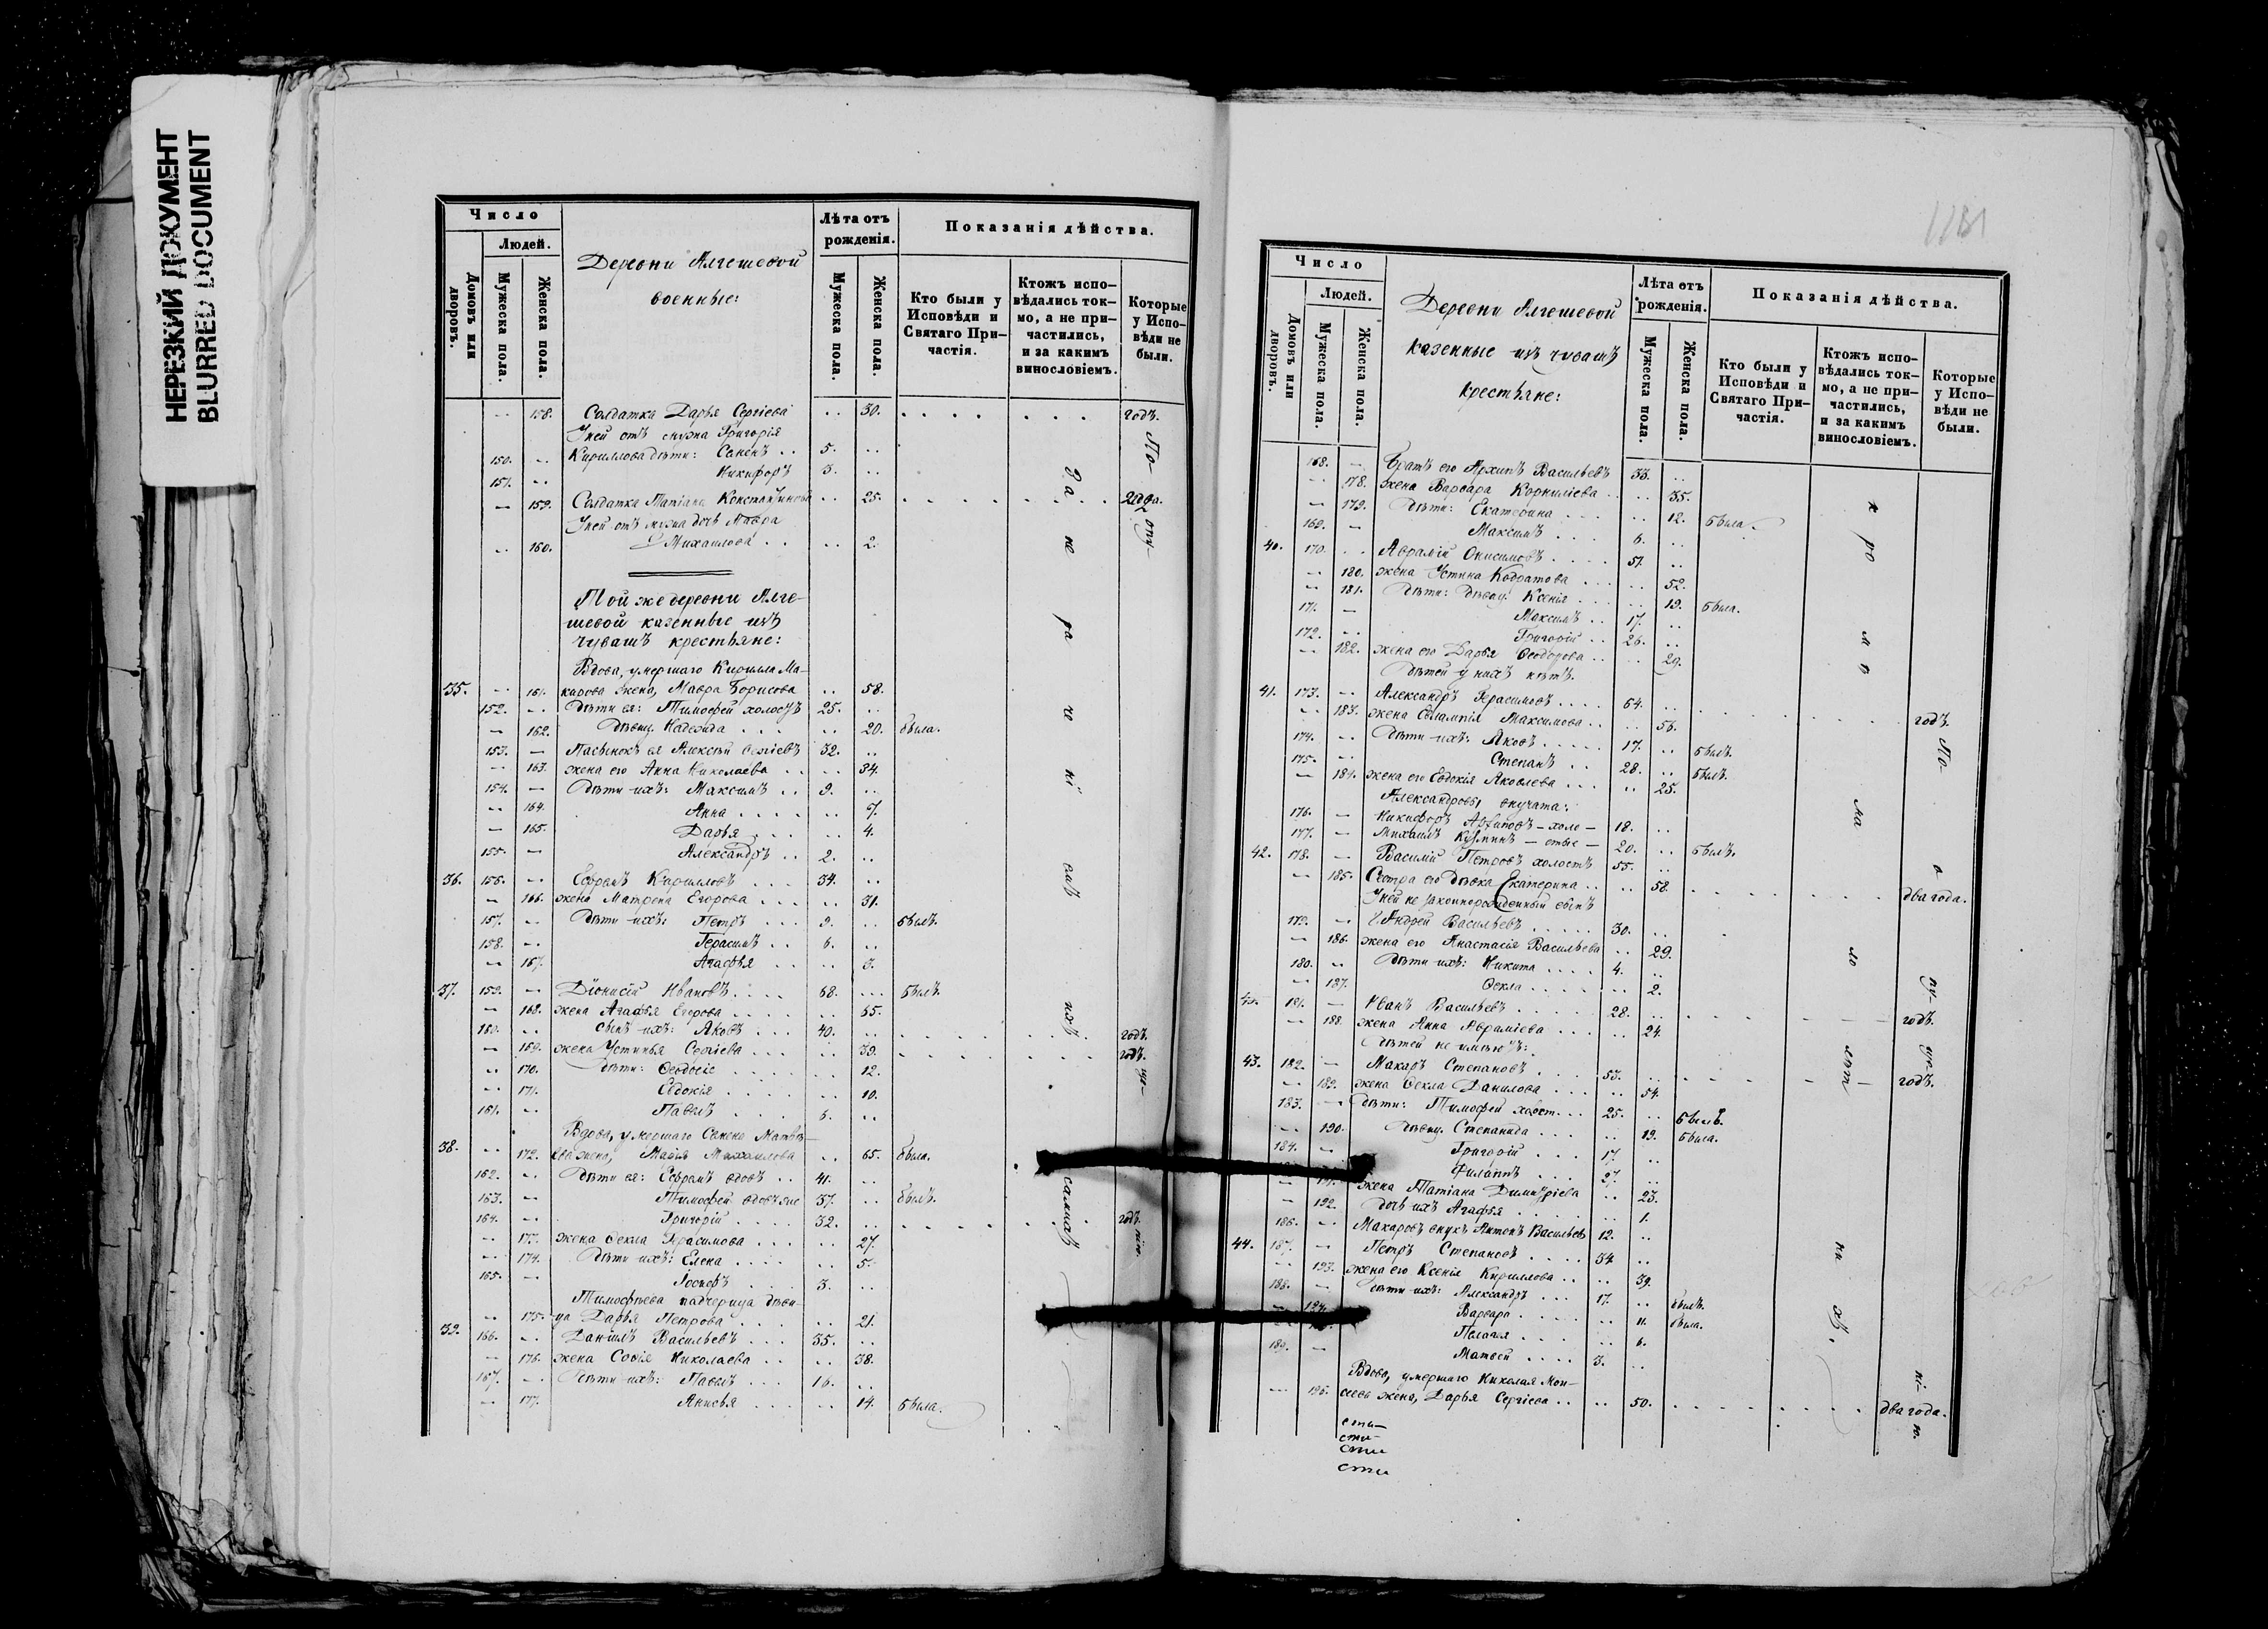 НЕРЕЗКИЙ ДОКУМЕНТ
BLURRED DOCUMENT
Число
Людей.
Домовъ или дворовъ.
Мужеска пола.
Женска пола.
Деревни Алгешевой
военные:
Лѣта отъ рожденія.
Мужеска пола.
Женска пола.
Показанія дѣйства.
Кто были у Исповѣди и Святаго Причастія.
Ктожъ исповѣдались токмо, а не причастились, и за какимъ винословіемъ.
Которые у Исповѣди не были.
— 158. Солдатка Дарья Сергіева .. 30. годъ.
У ней отъ мужа Григорія
150. — Кириллова дѣти: Семенъ .. 5. ..
151. — Никифоръ 3. ..
— 159. Солдатка Татіана Константинова .. 25. года.
У ней отъ мужа дочь Мавра
— 160. Михаилова .. .. 2.
Той же деревни Алге-
шевой казенные изъ
чувашъ крестьяне:
Вдова, умершаго Кирилла Ма-
35. — 161. карова жена, Мавра Борисова .. 58.
152. — Дѣти ея: Тимофей холостъ 25. ..
— 162. дѣвиц. Надежда .. 20. была.
153. — Пасынокъ ея Алексѣй Сергіевъ 32. ..
— 163. жена его Анна Николаева .. 34.
154. — Дѣти ихъ: Максимъ .. 9. ..
— 164. Анна .. 7.
— 165. Дарья .. 4.
155. — Александръ .. 2. ..
36. 156. — Ефремъ Кирилловъ 34. ..
— 166. жена Матрена Егорова .. 31.
157. — Дѣти ихъ: Петръ 9. .. былъ.
158. — Герасимъ .. 6. ..
— 167. Агафья .. 3.
37. 159. — Діонисій Ивановъ 68. .. былъ.
— 168. жена Агафья Егорова .. 65.
160. — сынъ ихъ: Яковъ 40. .. годъ.
— 169. жена Устинья Сергіева .. 39. годъ.
— 170. Дѣти: Ѳеодосіе .. 12.
— 171. Евдокія .. 10.
161. — Павелъ 6. ..
Вдова, умершаго Семена Матвѣ-
38. — 172. ева жена, Марья Михаилова .. 65. была.
162. — Дѣти ея: Ефремъ вдовъ .. 41. ..
163. — Тимофей вдовъ же 37. .. былъ.
164. — Григорій 32. .. годъ.
— 173. жена Ѳекла Герасимова .. 27.
— 174. Дѣти ихъ: Елена .. 5.
165. — Іосифъ 3. ..
Тимофеева падчерица дѣви-
— 175. ца Дарья Петрова .. 21.
39. 166. — Даніилъ Васильевъ 35. ..
— 176. жена Софія Николаева .. 38.
167. — Дѣти ихъ: Павелъ 16. ..
— 177. Анисья .. 14. была.
За не ра че ні емъ ихъ самихъ
По- опу- ще- нію.
Число
Людей.
Домовъ или дворовъ.
Мужеска пола.
Женска пола.
Деревни Алгешевой
казенные изъ чувашъ
крестьяне:
Лѣта отъ рожденія.
Мужеска пола.
Женска пола.
Показанія дѣйства.
Кто были у Исповѣди и Святаго Причастія.
Ктожъ исповѣдались токмо, а не причастились, и за какимъ винословіемъ.
Которые у Исповѣди не были.
168. — Братъ его Архипъ Васильевъ 33. ..
— 178. жена Варвара Корниліева .. 35.
— 179. Дѣти: Екатерина .. 12. была.
169. — Максимъ 6. ..
40. 170. — Аврамій Онисимовъ 51. ..
— 180. жена Устина Кодратова .. 52.
— 181. Дѣти: дѣвиц. Ксенія .. 19. была.
171. — Максимъ .. 17. ..
172. — Григорій .. 26. ..
— 182. жена его Дарья Ѳеодорова .. 29.
Дѣтей у нихъ нѣтъ.
41. 173. — Александръ Герасимовъ 64. .. годъ.
— 183. жена Евлампія Максимова .. 56.
174. — Дѣти ихъ: Яковъ 17. .. былъ.
175. — Степанъ .. 28. .. былъ.
— 184. жена его Евдокія Яковлева .. 25.
Александровы внучата:
176. — Никифоръ — холо- 18. ..
177. — Михаилъ Кузминъ — стые — 20. .. былъ.
42. 178. — Василій Петровъ холостъ 55. ..
— 185. Сестра его дѣвка Екатерина .. 58. два года.
У ней не законнорожденный сынъ
179. — Андрей Васильевъ 30. ..
— 186. жена его Анастасія Васильева .. 29.
180. — Дѣти ихъ: Никита 4. ..
— 187. Ѳекла .. 2.
181. — Иванъ Васильевъ 28. .. годъ.
— 188. жена Анна Авраміева .. 24.
Дѣтей не имѣютъ:
43. 182. — Макаръ Степановъ 53. .. годъ.
— 189. жена Ѳекла Данилова .. 54.
183. — Дѣти: Тимофей холост. 25. .. былъ.
— 190. дѣвиц. Степанида .. 19. была.
184. — Григорій 17. ..
Филиппъ 27. ..
жена Татіана Димитріева .. 23.
— 192. дочь ихъ Агафья .. 1.
186. — Макаровъ внукъ Антонъ Васильевъ 12. ..
44. 187. — Петръ Степановъ 34. ..
— 193. жена его Ксенія Кириллова .. 39.
188. — Дѣти ихъ: Александръ 17. .. былъ.
— 194. Варвара .. 11. была.
Пелагея .. 6.
189. — Матвей 3. ..
Вдова, умершаго Николая Мои-
— 196. сеева жена, Дарья Сергіева .. 50. два года.
По- о- пу- ще- ні- ю.
сти-
сти-
сти
сти